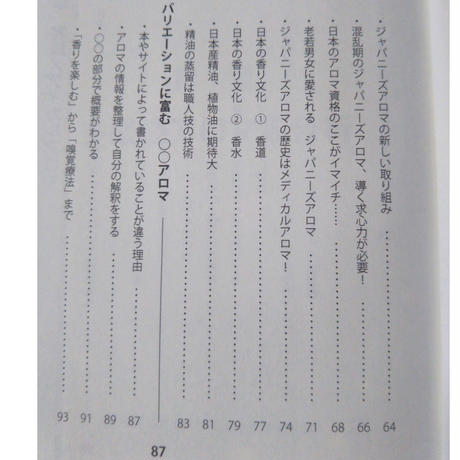 ジャパニーズアロマの新しい取り組み……64
混乱期のジャパニーズアロマ、導く求心力が必要！……66
日本のアロマ資格のここがイマイチ……68
老若男女に愛される　ジャパニーズアロマ……71
ジャパニーズアロマの歴史はメディカルアロマ！……74
日本の香り文化　①　香道……77
日本の香り文化　②　香水……79
日本産精油、植物油に期待大……81
精油の蒸留は職人技の技術……83
バリエーションに富む　○○アロマ　87
本やサイトによって書かれていることが違う理由……87
アロマの情報を整理して自分の解釈をする……89
○○の部分で概要がわかる……91
「香りを楽しむ」から「嗅覚療法」まで……93